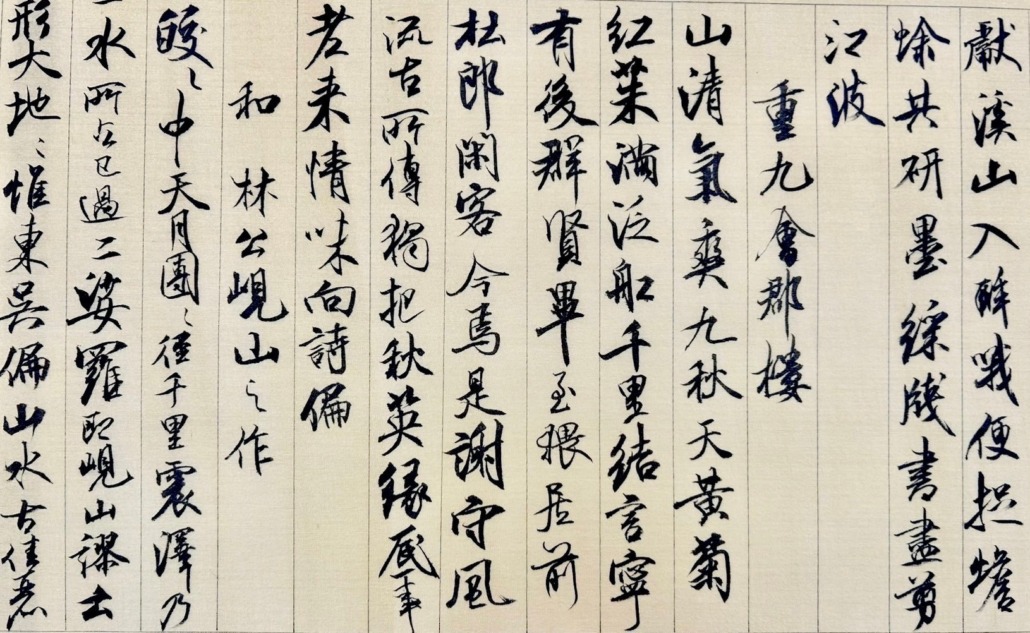 獻溪山入醉哦便捉蟾
蜍共研墨綵牋書盡剪
江波
重九會郡樓
山清氣爽九秋天黃菊
紅茱滿泛船千里結言寧
有後群賢畢至猥居前
杜郎閑客今焉是謝守風
流古所傳獨把秋英緣底事
老來情味向詩偏
和林公峴山之作
皎〻中天月團〻徑千里震澤乃
一水所占已過二娑羅即峴山謬云
形大地〻惟東吳偏山水古佳麗